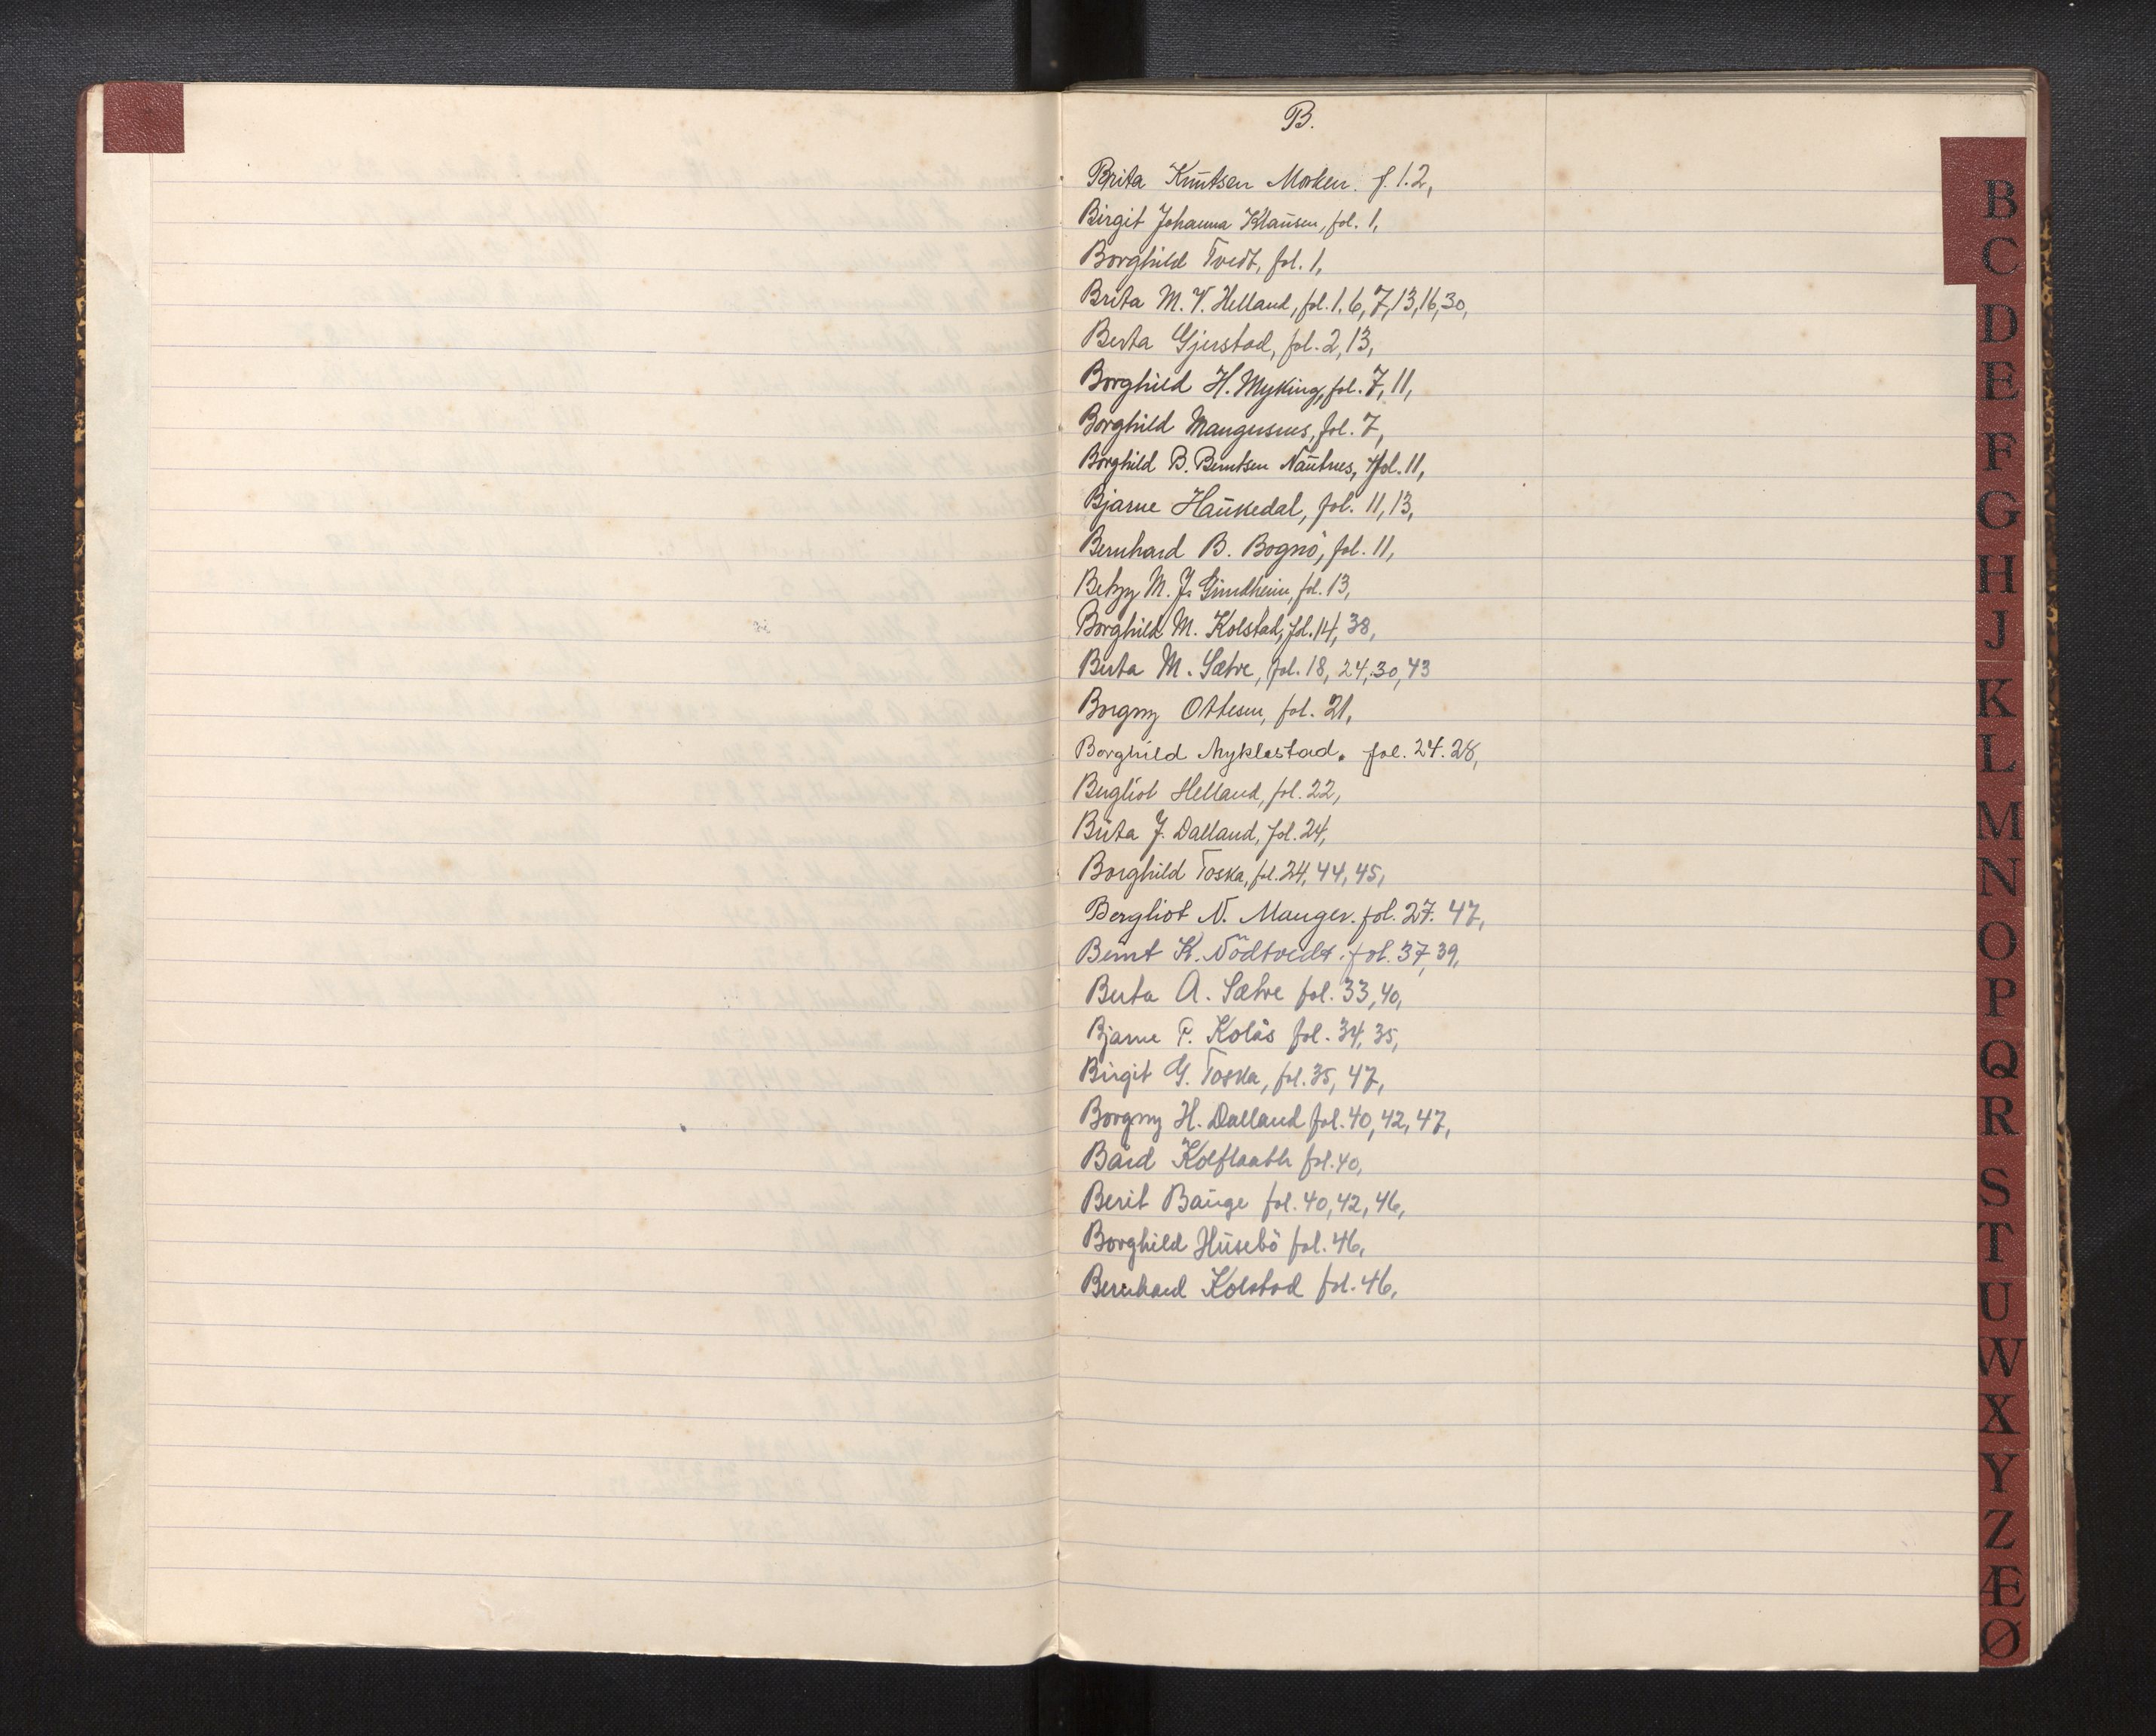 B.
Brita Knutsen Morken. f. 1.2,
Birgit Johanna Klausen, fol. 1,
Borghild Tvedt, fol. 1,
Brita M. V. Helland, fol. 1, 6, 7, 13, 16, 30,
Berta Gjerstad, fol. 2, 13,
Borghild H. Myking, fol. 7, 11,
Borghild Mangersnes, fol. 7,
Borghild B. Berntsen Nautnes, fol. 11,
Bjarne Haukedal, fol. 11, 13,
Bernhard B. Bognö, fol. 11,
Betzy M. J. Grindheim, fol. 13,
Borghild M. Kolstad, fol. 14, 38,
Berta M. Sætre, fol. 18, 24, 30, 43
Borgny Ottesen, fol. 21,
Borghild Myklestad. fol. 24. 28,
Bergliot Helland, fol. 22,
Brita J. Dalland, fol. 24,
Borghild Toska, fol. 24, 44, 45,
Bergliot N. Manger. fol. 27. 47,
Bernt K. Nödtvedt. fol. 37, 39,
Berta A. Sætre fol. 33, 40,
Bjarne F. Kolås fol. 34, 35,
Birgit G. Toska, fol. 35, 47,
Borgny H. Dalland fol. 40, 42, 47,
Bård Kolflaath fol. 40,
Berit Bauge fol. 40, 42, 46,
Borghild Husebö fol. 46,
Bernhard Kolstad fol. 46,
B
C
D
E
F
G
H
J
K
L
M
N
O
P
Q
R
S
T
U
W
X
Y
Z
Æ
Ø